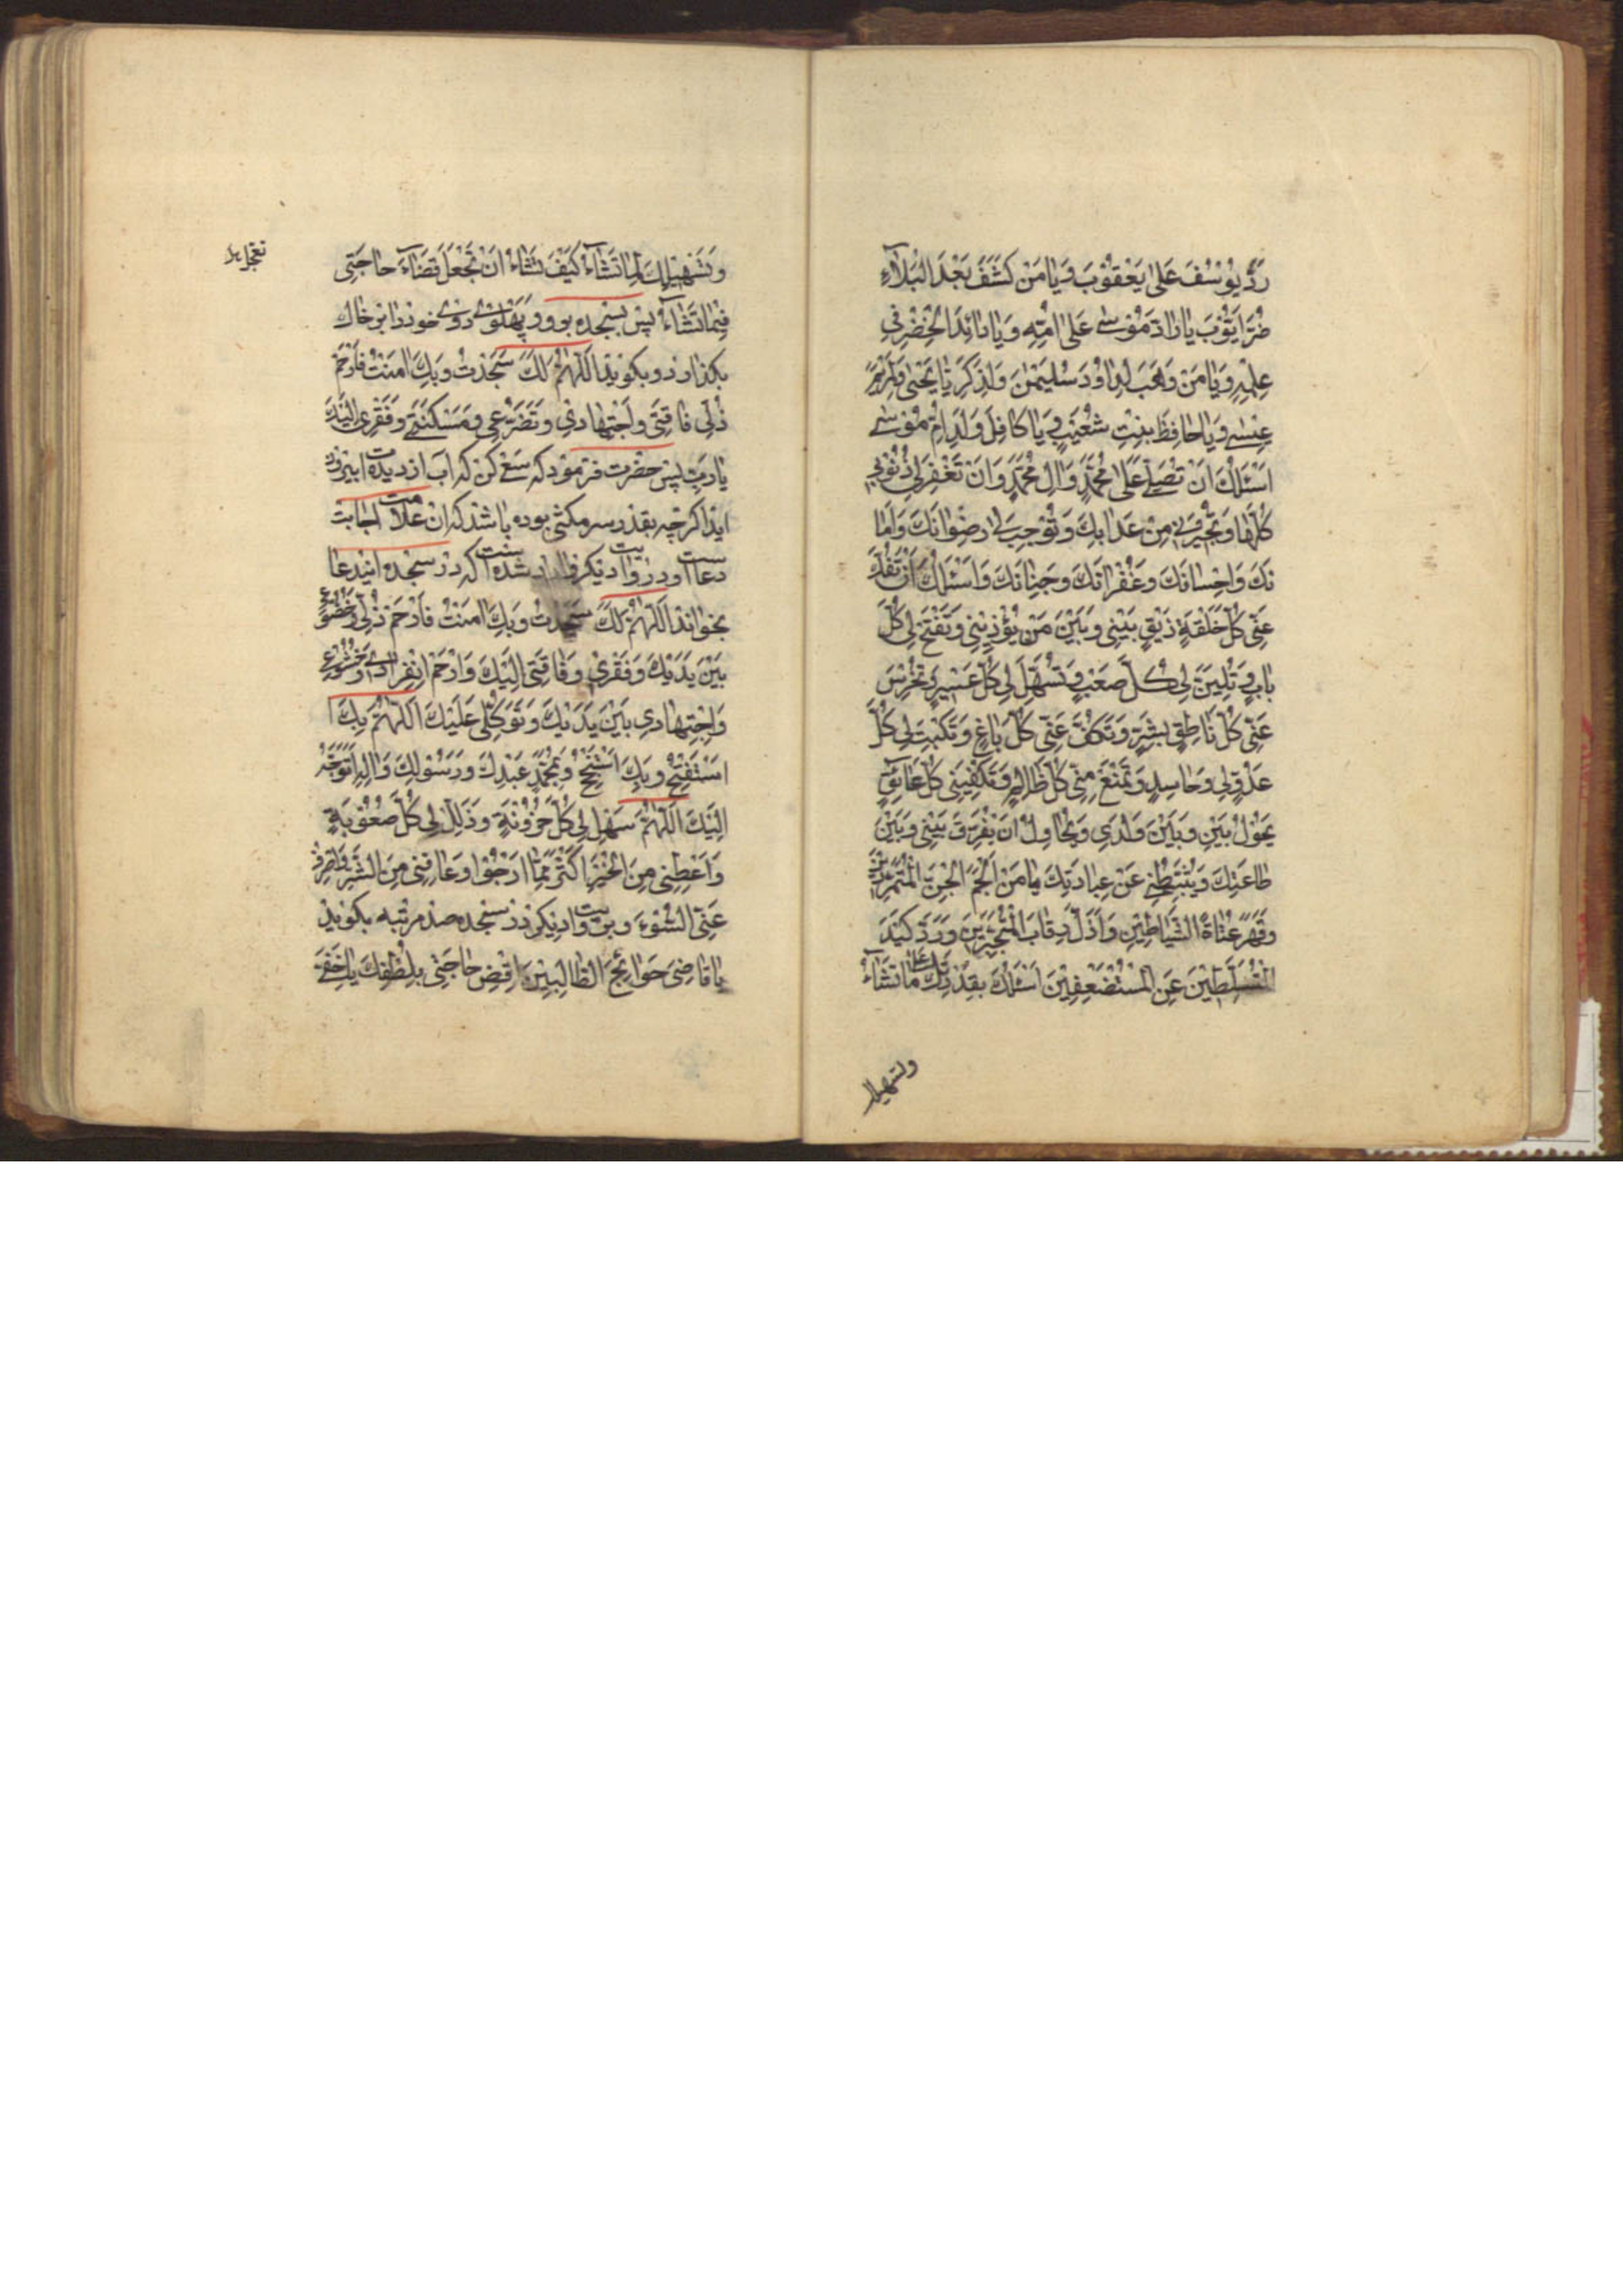 رَدَّ يُوسُفَ عَلى يَعْقُوبَ وَيا مَنْ كَشَفَ بَعْدَ الْبَلآءِ
ضُرَّ اَيُّوبَ يا رادَّ مُوسى عَلى اُمِّهِ وَيا زائِدَ الْخِضْرِ فى
عِلْمِهِ وَيا مَنْ وَهَبَ لِداوُدَ سُلَيْمنَ وَلِذَكَرِيّا يَحْيى وَلِمَرْيَمَ
عِيسى وَيا حافِظَ بِنْتِ شُعَيْبٍ وَيا كافِلَ وَلَدِ اُمِّ مُوسى
اَسْئَلُكَ اَنْ تُصَلِّىَ عَلى مُحَمَّدٍ وَالِ مُحَمَّدٍ وَاَنْ تَغْفِرَ لِى ذُنُوبِى
كُلَّها وَتُجِيرَنِى مِنْ عَذابِكَ وَتُوجِبَ لِى رِضْوانَكَ وَاَما
نَكَ وَاِحْسانَكَ وَغُفْرانَكَ وَجِنانَكَ وَاَسْئَلُكَ اَنْ تَفُكَّ
عَنِّى كُلَّ حَلْقَةٍ ذَيْقٍ بَيْنِى وَبَيْنَ مَنْ يُؤْذِينِى وَتَفْتَحَ لِى كُلَّ
بابٍ وَتُلِينَ لِى كُلَّ صَعْبٍ وَتُسَهِّلَ لِى كُلَّ عَسِيرٍ وَتُخْرِسَ
عَنِّى كُلَّ ناطِقٍ بِشَرٍّ وَتَكُفَّ عَنِّى كُلَّ باغٍ وَتَكْبِتَ لِى كُلَّ
عَدُوٍّ لِى وَحاسِدٍ وَتَمْنَعَ مِنِّى كُلَّ ظالِمٍ وَتَكْفِيَنِى كُلَّ عائِقٍ
يَحُولُ بَيْنِى وَبَيْنَ وَلَدِى وَيُحاوِلُ اَنْ يُفَرِّقَ بَيْنِى وَبَيْنَ
طاعَتِكَ وَيُثَبِّطَنِى عَنْ عِبادَتِكَ يا مَنْ اَلْجَمَ الْجِنَّ الْمُتَمَرِّدِينَ
وَقَهَرَ عُتاةَ الشَّياطِينِ وَاَذَلَّ رِقابَ الْمُتَجَبِّرِينَ وَرَدَّ كَيْدَ
الْمُتَسَلِّطِينَ عَنِ الْمُسْتَضْعَفِينَ اَسْئَلُكَ بِقُدْرَتِكَ عَلى ما تَشآءُ
وتسهيلك
وَتَسْهِيلِكَ لِما تَشآءُ كَيْفَ تَشاءُ اَنْ تَجْعَلَ قَضاءَ حاجَتِى
فِيما تَشآءُ پس بسجده برو و پهلوى روى خود را بر خاك
بگذارد و بگويد اَللّهُمَّ لَكَ سَجَدْتُ وَبِكَ امَنْتُ فَارْحَمْ
ذُلِّى فاقَتِى وَاجْتِهادِى وَتَضَرُّعِى وَمَسْكَنَتِى وَفَقْرِى اِلَيْكَ
يا رَبِّ پس حضرت فرمود كه سعى كن كه اب از ديده ات بيرون
ايد اگرچه بقدر سر مگسى بوده باشد كه ان علامت اجابت
دعاست و در روايت ديگر وارد شده است كه در سجده ايندعا
بخواند اَللّهُمَّ لَكَ سَجَدْتُ وَبِكَ امَنْتُ فَارْحَمْ ذُلِّى وَخُضُوعِى
بَيْنَ يَدَيْكَ وَفَقْرِى وَفاقَتِى اِلَيْكَ وَارْحَمْ اِنْفِرادِى وَخُشُوعِى
وَاجْتِهادِى بَيْنَ يَدَيْكَ وَتَوَكُّلِى عَلَيْكَ اَللّهُمَّ بِكَ
اَسْتَفْتِحُ وَبِكَ اَسْتَنْجِحُ وَبِمُحَمَّدٍ عَبْدِكَ وَرَسُولِكَ وَالِهِ اَتَوَجَّهُ
اِلَيْكَ اَللّهُمَّ سَهِّلْ لِى كُلَّ حُزُونَةٍ وَذَلِّلْ لِى كُلَّ صُعُوبَةٍ
وَاَعْطِنِى مِنَ الْخَيْرِ اَكْثَرَ مِمّا اَرْجُوا وَعافِنِى مِنَ الشَّرِّ وَاصْرِفْ
عَنِّى السُّوءَ و بروايت ديگر در سجده صد مرتبه بگويد
يا قاضِىَ حَوائِجَ الطّالِبِينَ اِقْضِ حاجَتِى بِلُطْفِكَ يا خَفِىَّ